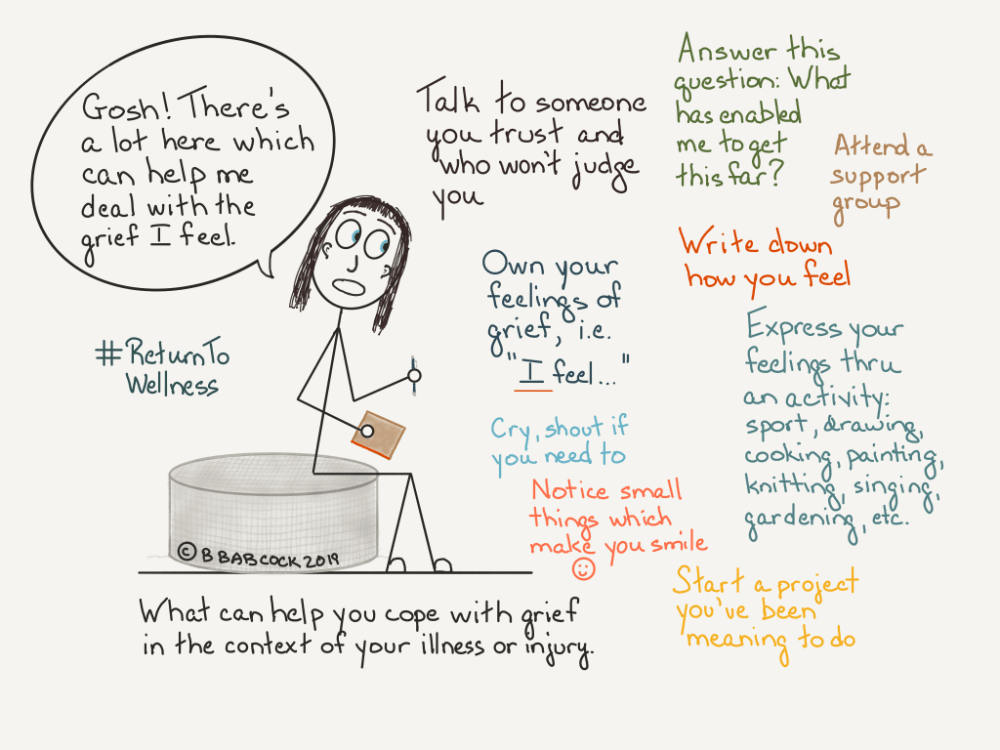 Gosh! There's
a lot here which
can help me
deal with the
grief I feel.
#ReturnTo
Wellness
© B BABCOCK 2019
What can help you cope with grief
in the context of your illness or injury.
Talk to someone
you trust and
who won't judge
you
Own your
feelings of
grief, i.e.
"I feel..."
Cry, shout if
you need to
Notice small
things which
make you smile
Answer this
question: What
has enabled
me to get
this far?
Attend a
support
group
Write down
how you feel
Express your
feelings thru
an activity:
sport, drawing,
cooking, painting,
knitting, singing,
gardening, etc.
Start a project
you've been
meaning to do